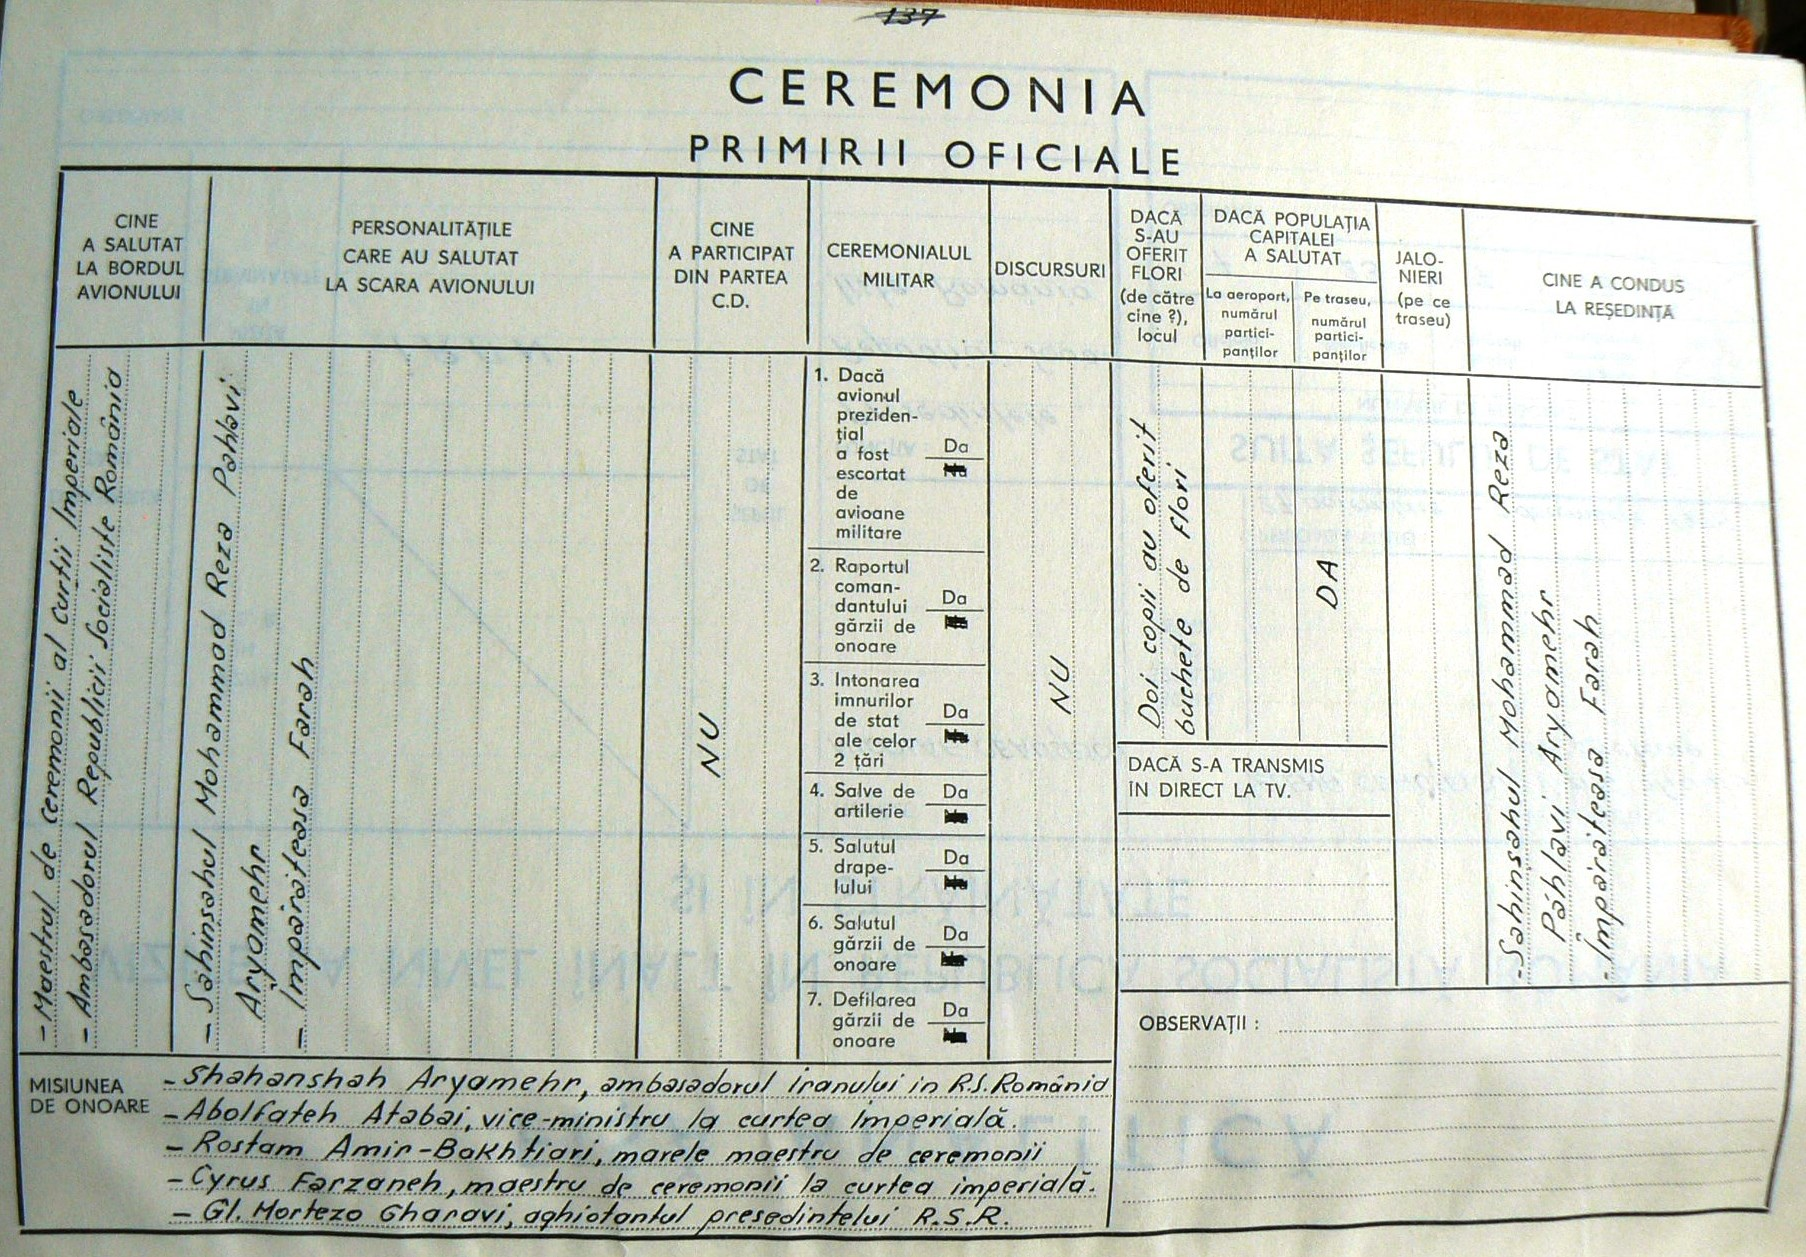 137
CEREMONIA
PRIMIRII OFICIALE
CINE
A SALUTAT
LA BORDUL
AVIONULUI
- Maestrul de Ceremonii al Curții Imperiale
- Ambasadorul Republicii Socialiste România
PERSONALITĂȚILE
CARE AU SALUTAT
LA SCARA AVIONULUI
- Șahinșahul Mohammad Reza Pahlavi
Aryamehr
- Împărăteasa Farah
CINE
A PARTICIPAT
DIN PARTEA
C.D.
NU
CEREMONIALUL
MILITAR
1. Dacă
avionul
preziden-
țial
a fost
escortat
de
avioane
militare
Da
2. Raportul
coman-
dantului
gărzii de
onoare
Da
3. Intonarea
imnurilor
de stat
ale celor
2 țări
Da
4. Salve de
artilerie
Da
5. Salutul
drape-
lului
Da
6. Salutul
gărzii de
onoare
Da
7. Defilarea
gărzii de
onoare
Da
DISCURSURI
NU
DACĂ
S-AU
OFERIT
FLORI
(de către
cine ?),
locul
Doi copii au oferit
buchete de flori
DACĂ POPULAȚIA
CAPITALEI
A SALUTAT
La aeroport,
numărul
partici-
panților
Pe traseu,
numărul
partici-
panților
DA
JALO-
NIERI
(pe ce
traseu)
CINE A CONDUS
LA REȘEDINȚĂ
- Șahinșahul Mohammad Reza
Páhlavi Aryamehr
- Împărăteasa Farah
DACĂ S-A TRANSMIS
ÎN DIRECT LA TV.
OBSERVAȚII :
MISIUNEA
DE ONOARE
- Shahanshah Aryamehr, ambasadorul Iranului in R.S. România
- Abolfateh Atabai, vice-ministru la curtea Imperială.
- Rostam Amir-Bakhtiari, marele maestru de ceremonii
- Cyrus Farzaneh, maestru de ceremonii la curtea imperială.
- Gl. Mortezo Gharavi, aghiotantul președintelui R.S.R.